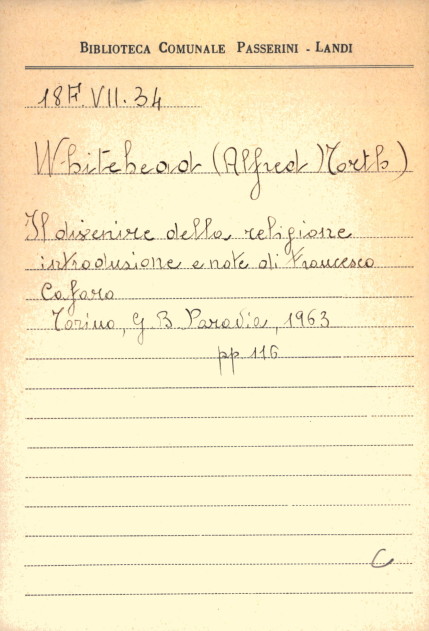 BIBLIOTECA COMUNALE PASSERINI - LANDI
18F.VII.34
Whitehead (Alfred North)
Il divenire della religione
introdusione e note di Francesco
Cafaro
Torino, G.B. Paravia, 1963
pp 116
C